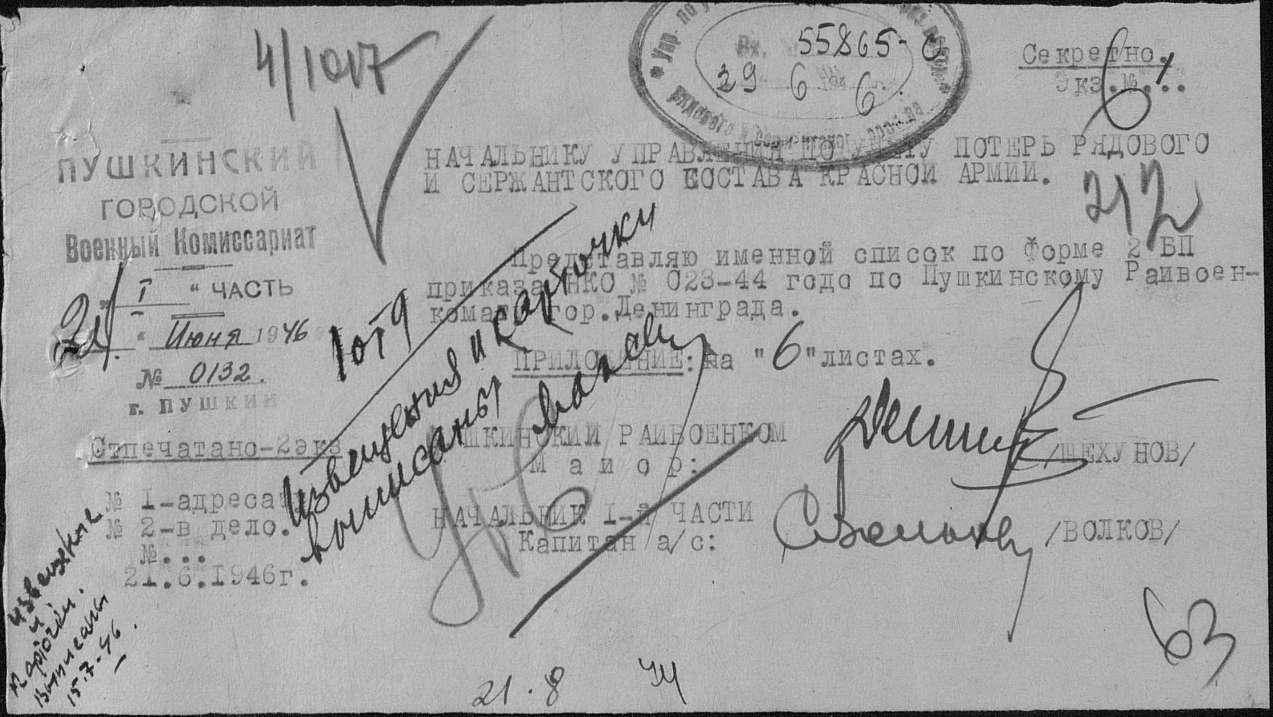 4/1017
Вх. 55865-с
29 6 1946 г.
Секретно.
Экз.№ 1
ПУШКИНСКИЙ
ГОРОДСКОЙ
Военный Комиссариат
"I" ЧАСТЬ
21 " Июня 1946
№ 0132.
г. ПУШКИН
НАЧАЛЬНИКУ УПРАВЛЕНИЯ ПО УЧЕТУ ПОТЕРЬ РЯДОВОГО
И СЕРЖАНТСКОГО СОСТАВА КРАСНОЙ АРМИИ.
212
Представляю именной список по Форме 2 БП
приказа НКО № 023-44 годо по Пушкинскому Раивоен-
комату гор.Ленинграда.
ПРИЛОЖЕНИЕ: на "6"листах.
1 от 9
Извещения и карточки
выписаны
Отпечатано-2экз
№ 1-адреса
№ 2-в дело.
№...
21.6.1946г.
ПУШКИНСКИЙ РАИВОЕНКОМ
М а и о р:
/ШЕХУНОВ/
НАЧАЛЬНИК I-й ЧАСТИ
Капитан а/с:
/ВОЛКОВ/
извещение
и
карточки
выписаны
15.7.46.
21.8
63